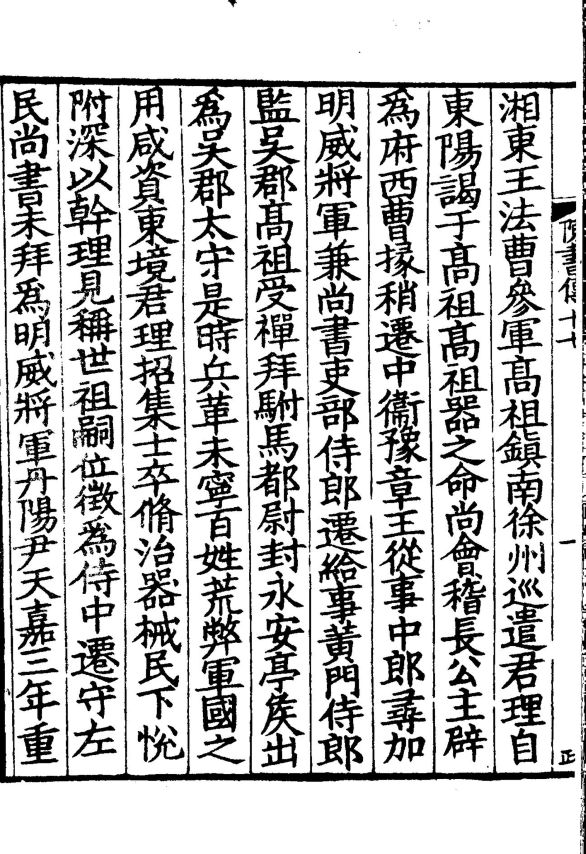 陳書傳十七
一
正
湘東王法曹參軍高祖鎮南徐州巡遣君理自
東陽謁于高祖高祖器之命尚會稽長公主辟
為府西曹掾稍遷中衞豫章王從事中郎尋加
明威將軍兼尚書吏部侍郎遷給事黃門侍郎
監吳郡高祖受禪拜駙馬都尉封永安亭矦出
為吳郡太守是時兵革未寧百姓荒弊軍國之
用咸資東境君理招集士卒脩治器械民下恱
附深以幹理見稱世祖嗣位徵為侍中遷守左
民尚書未拜為明威將軍丹陽尹天嘉三年重